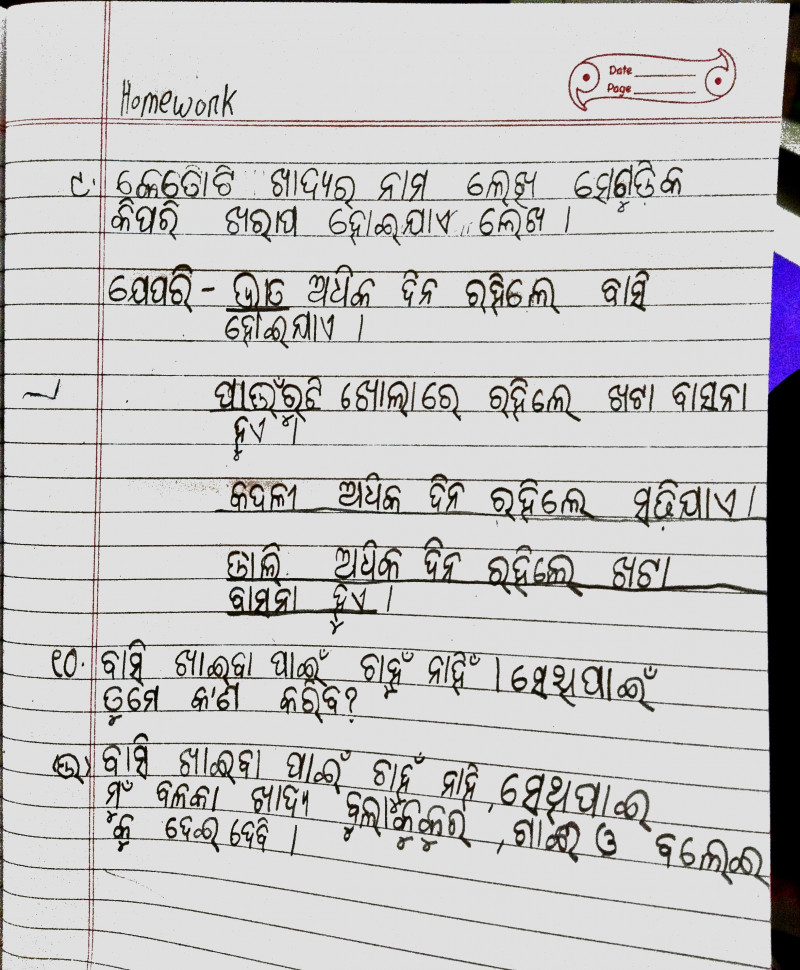 Homework
Date
Page
୯. କେତୋଟି ଖାଦ୍ୟର ନାମ ଲେଖ ସେଗୁଡ଼ିକ
କିପରି ଖରାପ ହୋଇଯାଏ ଲେଖ ।
ଯେପରି - ଭାତ ଅଧିକ ଦିନ ରହିଲେ ବାସି
ହୋଇଯାଏ ।
ପାଉଁରୁଟି ଖୋଲାରେ ରହିଲେ ଖଟା ବାସନା
ହୁଏ ।
କଦଳୀ ଅଧିକ ଦିନ ରହିଲେ ସଢ଼ିଯାଏ ।
ଡାଲି ଅଧିକ ଦିନ ରହିଲେ ଖଟା
ବାସନା ହୁଏ ।
୧୦. ବାସି ଖାଇବା ପାଇଁ ଚାହୁଁ ନାହିଁ । ସେଥିପାଇଁ
ତୁମେ କ'ଣ କରିବ?
(ଉ) ବାସି ଖାଇବା ପାଇଁ ଚାହୁଁ ନାହି, ସେଥିପାଇ
ମୁଁ ବଳକା ଖାଦ୍ୟ ବୁଲାକୁକୁର, ଗାଈ ଓ ବିଲେଇ
କୁ ଦେଇ ଦେବି ।